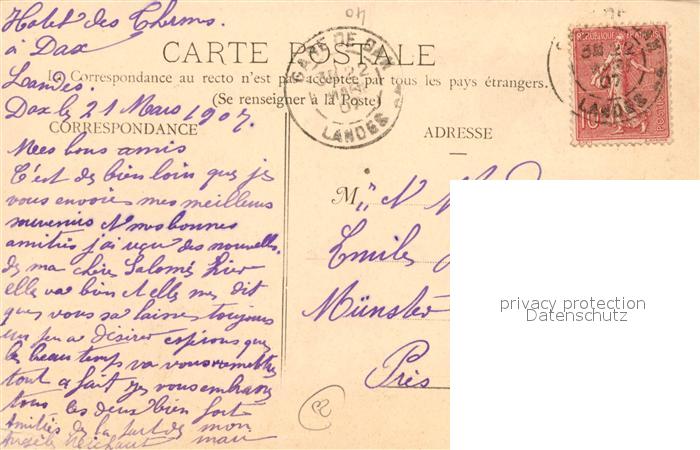 Hotel des Therms.
à Dax
Landes.
Dax le 21 Mars 1907.
CARTE POSTALE
La Correspondance au recto n'est pas acceptée par tous les pays étrangers.
(Se renseigner à la Poste)
CORRESPONDANCE
Mes bons amis
C'est de bien loin que je
vous envoie mes meilleurs
souvenirs et mes bonnes
amitiés j'ai reçu des nouvelles
de ma chère Salomé hier
elle va bien et elle me dit
que vous sa laisse toujours
un peu a désirer espérons que
le beau temps va vous remettre
tout a fait je vous embrasse
tous les deux bien fort
Amitiés de la part de mon
mari
Angèle
ADRESSE
M
Emile
Münster
Près
GARE DE DAX
22
MARS
07
LANDES
REPUBLIQUE FRANCAISE
10
POSTES
22
07
LANDES
40
privacy protection
Datenschutz